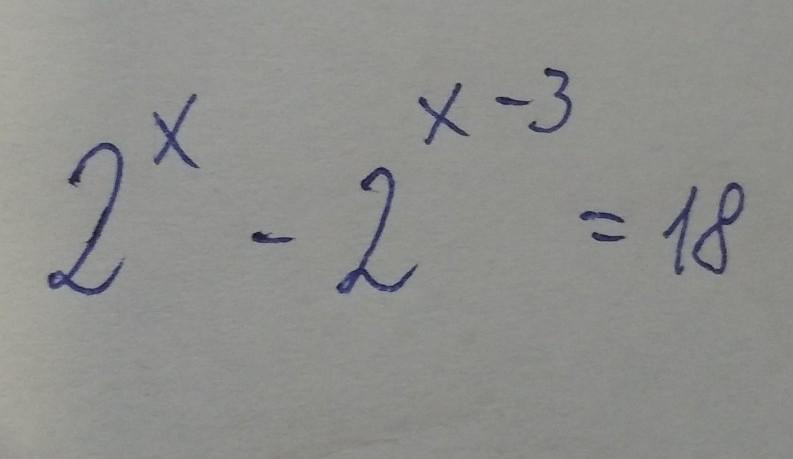 2^x - 2^{x-3} = 18